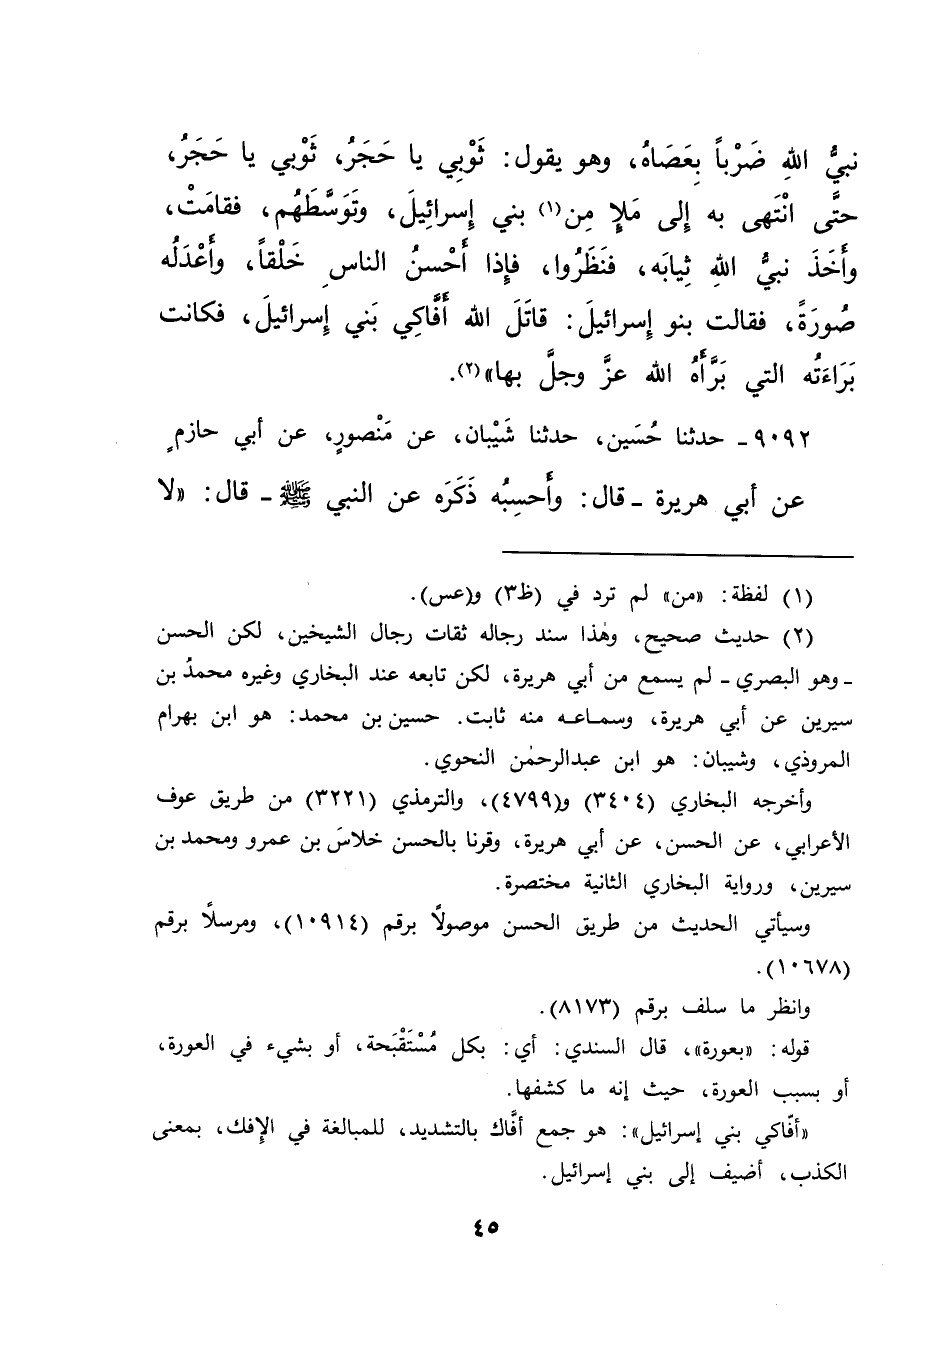 نبيُّ اللهِ ضَرْباً بِعَصَاهُ، وهو يقول: ثَوْبِي يا حَجَرُ، ثَوْبي يا حَجَرُ،
حتَّى انْتَهى به إلى مَلإٍ مِن(١) بني إسرائيلَ، وتَوَسَّطَهُم، فقامَتْ،
وأَخَذَ نبيُّ اللهِ ثِيابَه، فنَظَرُوا، فإذا أَحْسنُ الناسِ خَلْقاً، وأَعْدَلُه
صُورَةً، فقالت بنو إسرائيلَ: قاتَلَ الله أَفَّاكِي بَني إسرائيلَ، فكانت
بَرَاءَتُه التي بَرَّأَهُ الله عزَّ وجلَّ بها»(٢).
٩٠٩٢ـ حدثنا حُسَين، حدثنا شَيْبان، عن مَنْصورٍ، عن أبي حازمٍ
عن أبي هريرة ـ قال: وأَحسِبُه ذَكَرَه عن النبي ﷺ ـ قال: «لا
(١) لفظة: «من» لم ترد في (ظ٣) و(عس).
(٢) حديث صحيح، وهٰذا سند رجاله ثقات رجال الشيخين، لكن الحسن
ـ وهو البصري ـ لم يسمع من أبي هريرة، لكن تابعه عند البخاري وغيره محمدُ بن
سيرين عن أبي هريرة، وسماعه منه ثابت. حسين بن محمد: هو ابن بهرام
المروذي، وشيبان: هو ابن عبدالرحمٰن النحوي.
وأخرجه البخاري (٣٤٠٤) و(٤٧٩٩)، والترمذي (٣٢٢١) من طريق عوف
الأعرابي، عن الحسن، عن أبي هريرة، وقرنا بالحسن خلاسَ بن عمرو ومحمد بن
سيرين، ورواية البخاري الثانية مختصرة.
وسيأتي الحديث من طريق الحسن موصولاً برقم (١٠٩١٤)، ومرسلاً برقم
(١٠٦٧٨).
وانظر ما سلف برقم (٨١٧٣).
قوله: «بعورة»، قال السندي: أي: بكل مُسْتَقْبَحة، أو بشيء في العورة،
أو بسبب العورة، حيث إنه ما كشفها.
«أفّاكي بني إسرائيل»: هو جمع أفَّاك بالتشديد، للمبالغة في الإفك، بمعنى
الكذب، أضيف إلى بني إسرائيل.
٤٥